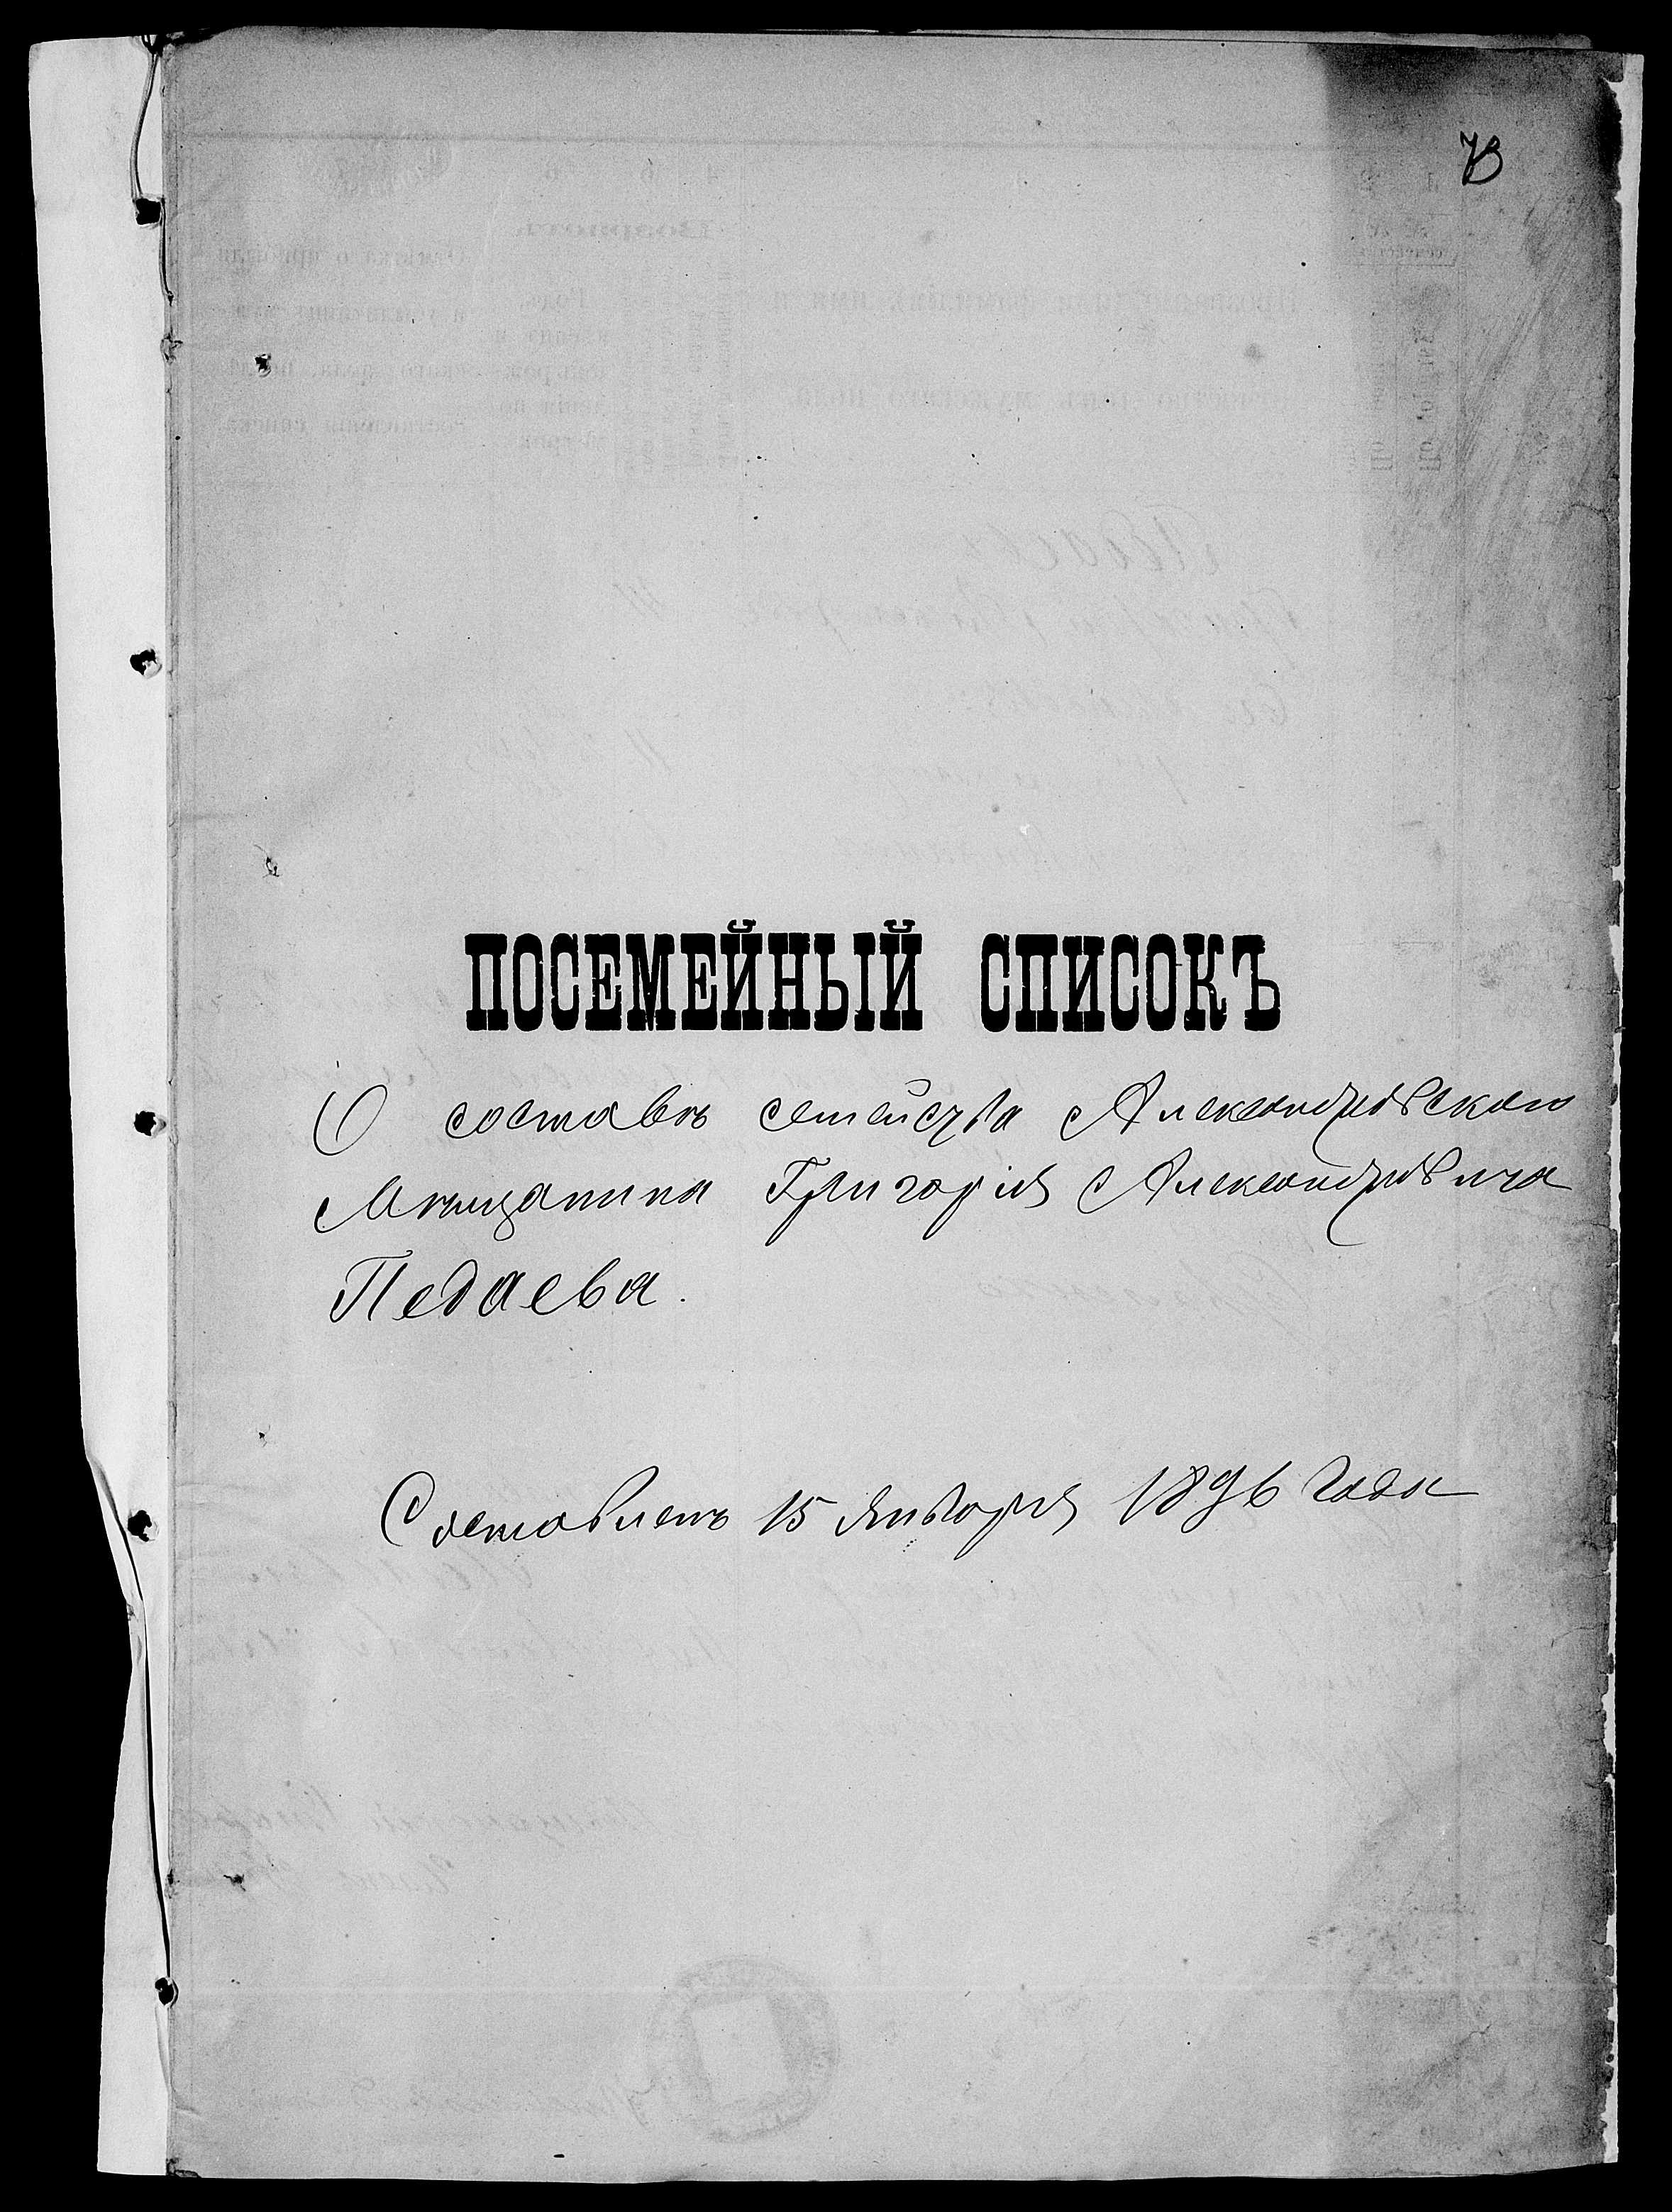 73
ПОСЕМЕЙНЫЙ СПИСОКЪ
О составѣ семейства Александровскаго
Мѣщанина Григорія Александровича
Педаева.
Составленъ 15 января 1896 года